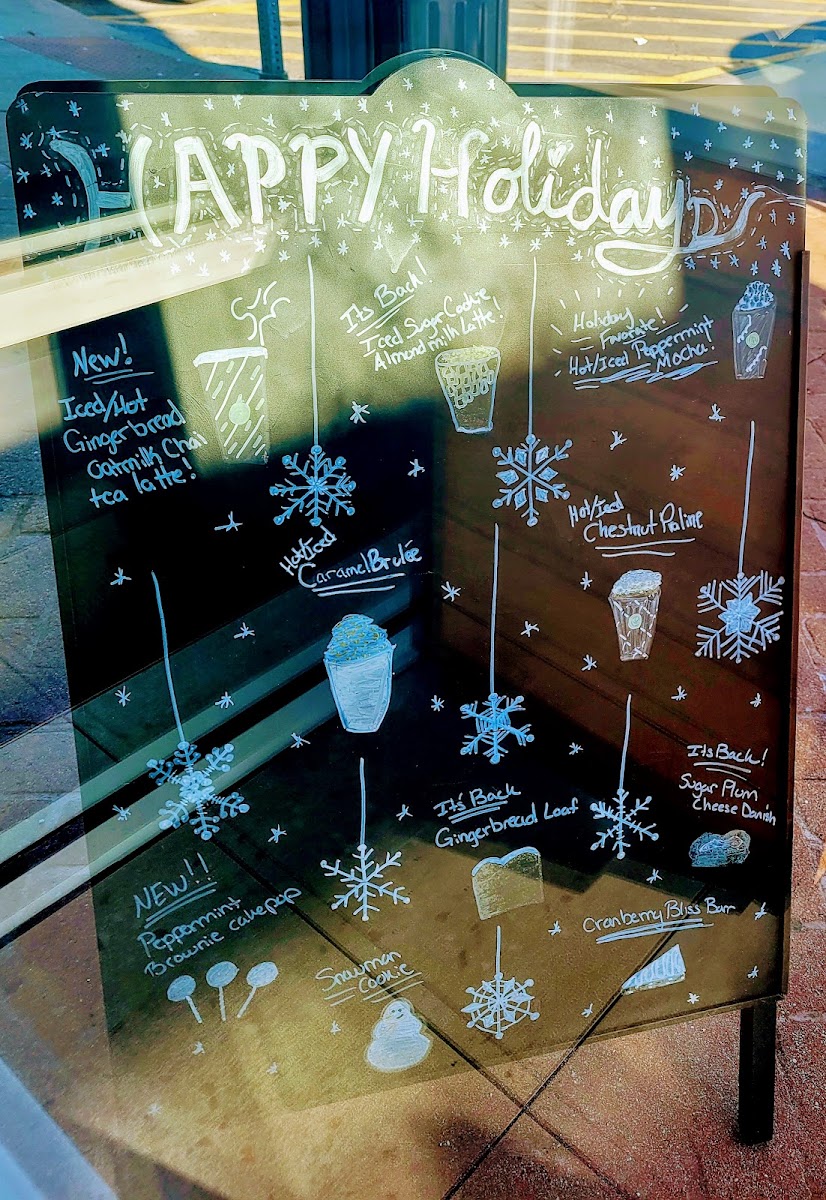 HAPPY Holidays
New!
Iced/Hot
Gingerbread
Oatmilk Chai
tea latte!
Its Back!
Iced Sugar Cookie
Almond milk latte!
Holiday
Favorate!
Hot/Iced Peppermint
Mocha!
Hot/Iced
Caramel Brulée
Hot/Iced
Chestnut Praline
It's Back
Gingerbread Loaf
Its Back!
Sugar Plum
Cheese Danish
NEW!!
Peppermint
Brownie cakepop
Snowman
Cookie
Cranberry Bliss Barr